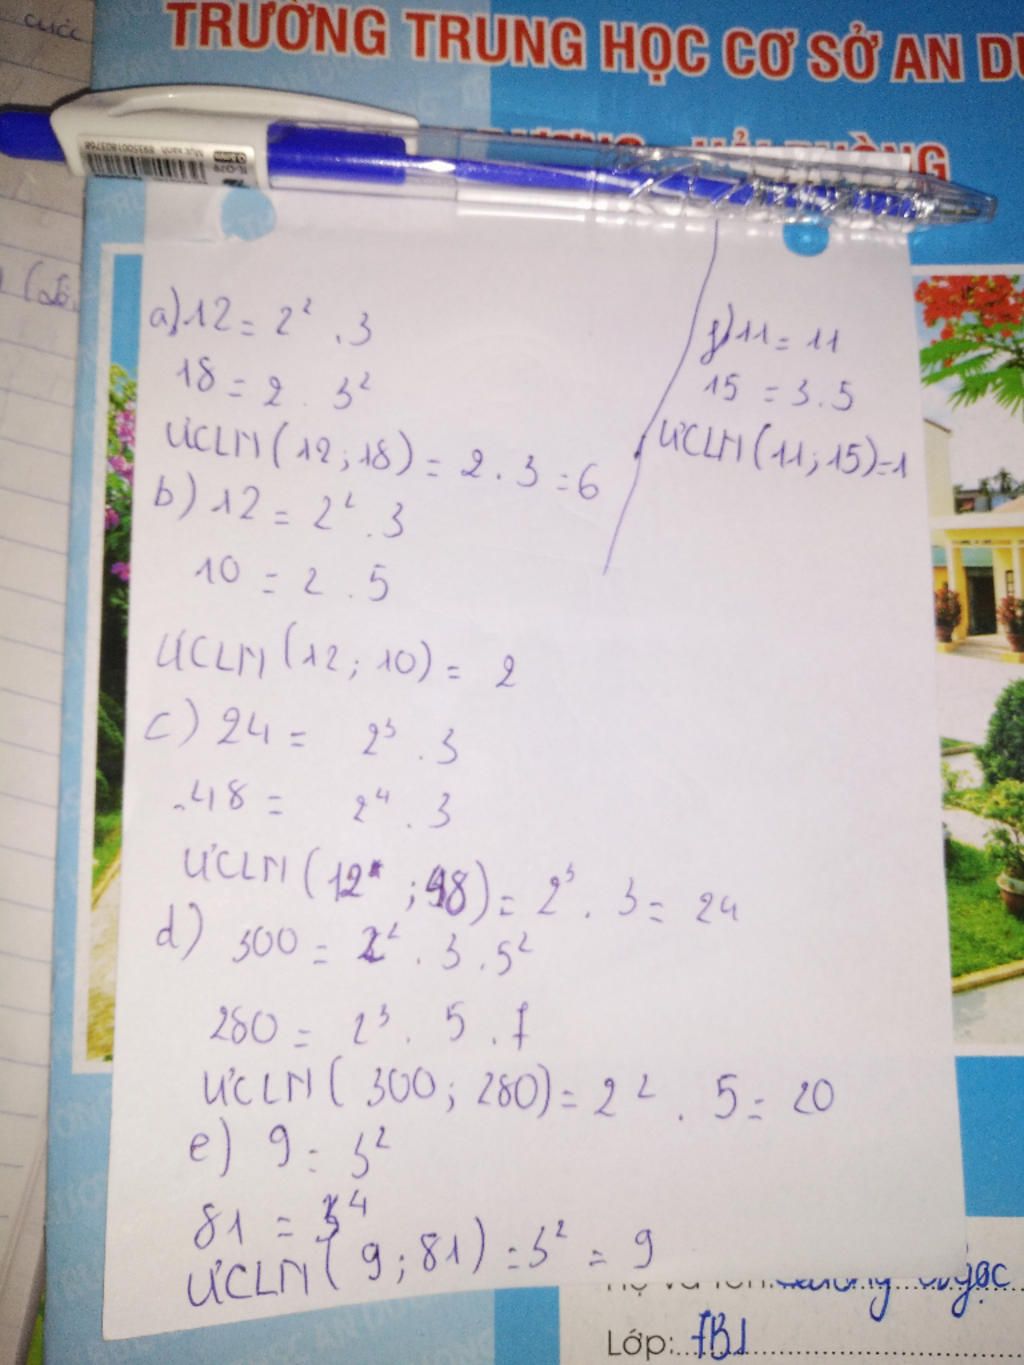 cuā
TRƯỜNG TRUNG HỌC CƠ SỞ AN DƯ
Mực xanh 8935001803768
a) 12 = 2² . 3
18 = 2 . 3²
ƯCLN (12 ; 18) = 2 . 3 = 6
b) 12 = 2² . 3
10 = 2 . 5
ƯCLN (12 ; 10) = 2
c) 24 = 2³ . 3
48 = 2⁴ . 3
ƯCLN (12 ; 48) = 2³ . 3 = 24
d) 300 = 2² . 3 . 5²
280 = 2³ . 5 . 7
ƯCLN (300 ; 280) = 2² . 5 = 20
e) 9 = 3²
81 = 3⁴
ƯCLN (9 ; 81) = 3² = 9
g) 11 = 11
15 = 3 . 5
ƯCLN (11 ; 15) = 1
Lớp: 7B1